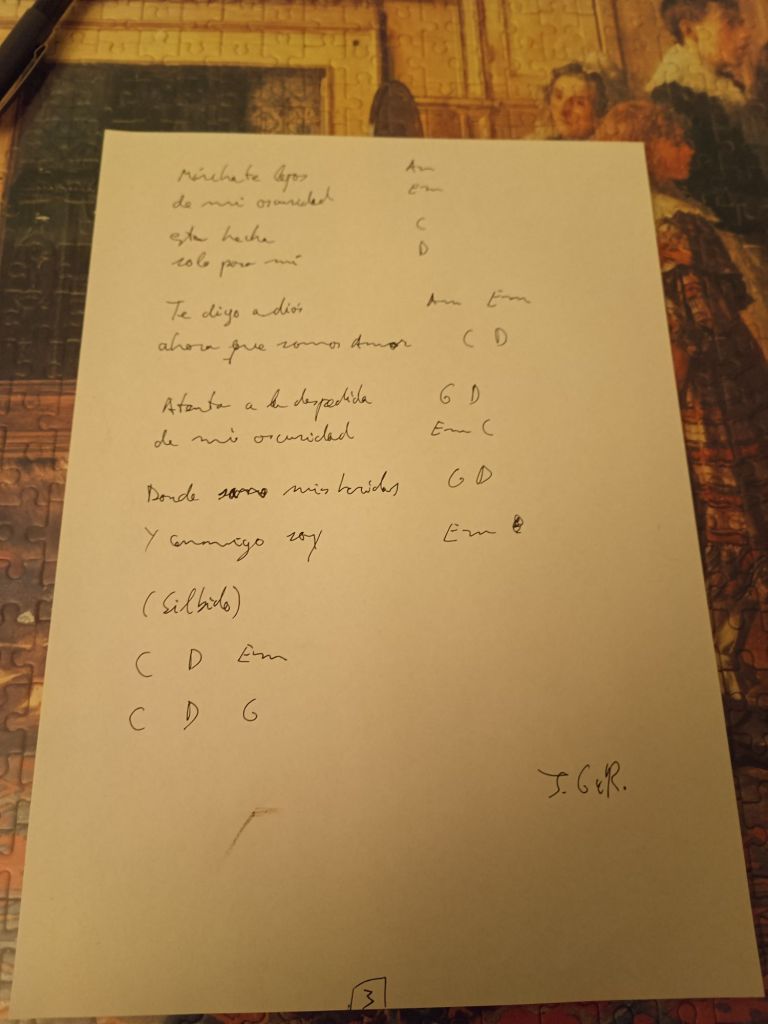 Márchate lejos Am
de mi oscuridad Em
esta hecha C
solo para mí D
Te digo adiós Am Em
ahora que somos Amor C D
Atenta a la despedida G D
de mi oscuridad Em C
Donde mis heridas G D
Y conmigo soy Em
(Silbido)
C D Em
C D G
J. G y R.
3